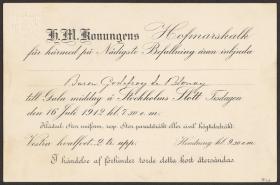 H. M. Konungens Hofmarskalk
får härmed på Nådigste Befallning äran inbjuda
Baron Godefroy de Blonay
till Gala middag å Stockholms Slott Tisdagen
den 16 Juli 1912 kl. 7.30 e. m.
Klädsel: Stor uniform, resp. Stor paraddräkt eller civil högtidsdräkt
Vestra hvalfvet. 2 tr. upp. Hemkörning kl. 9.30 e. m.
I händelse af förhinder torde detta kort återsändas.